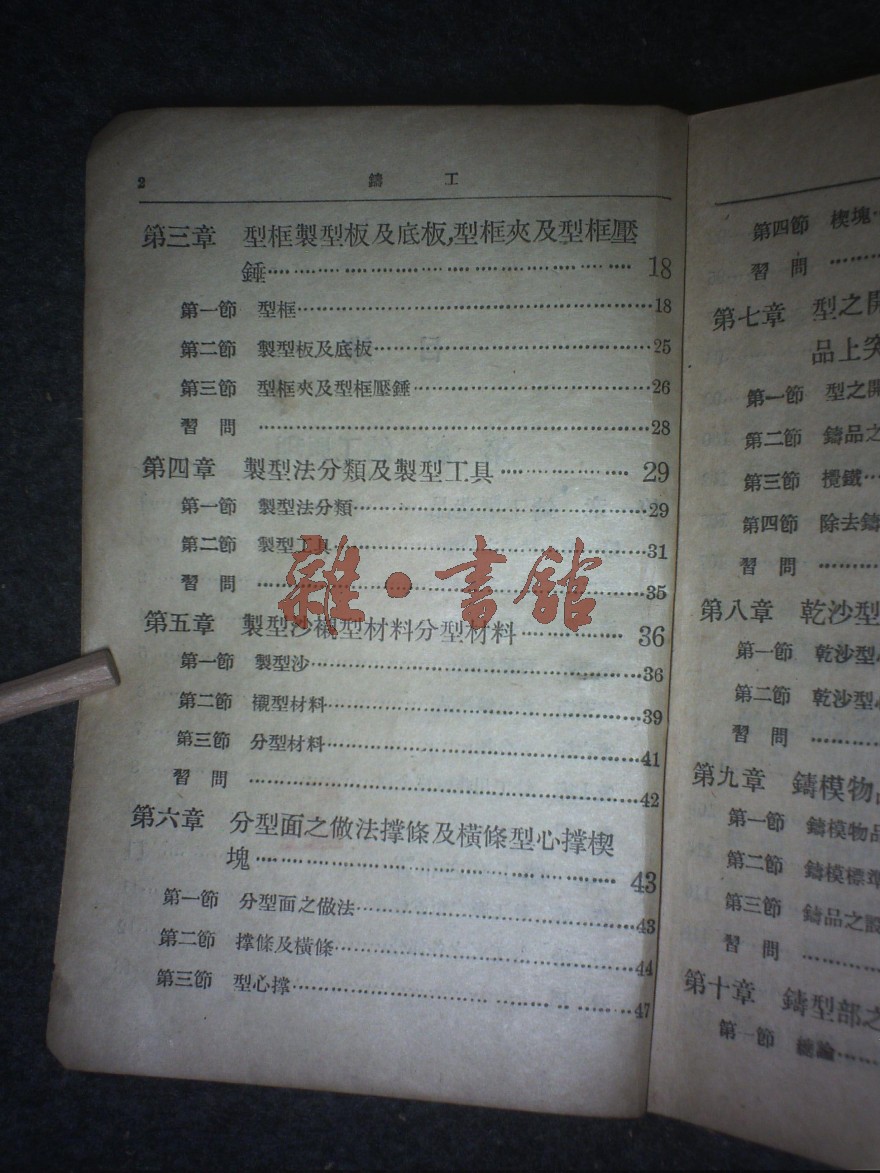 2 鑄 工
第三章 型框製型板及底板,型框夾及型框壓
錘 18
第一節 型框 18
第二節 製型板及底板 25
第三節 型框夾及型框壓錘 26
習 問 28
第四章 製型法分類及製型工具 29
第一節 製型法分類 29
第二節 製型工具 31
習 問 35
第五章 製型沙襯型材料分型材料 36
第一節 製型沙 36
第二節 襯型材料 39
第三節 分型材料 41
習 問 42
第六章 分型面之做法撑條及橫條型心撑楔
塊 43
第一節 分型面之做法 43
第二節 撑條及橫條 44
第三節 型心撑 47
雜·書館
第四節 楔塊
習 問
第七章 型之開
品上突
第一節 型之開
第二節 鑄品之
第三節 攪鐵
第四節 除去鑄
習 問
第八章 乾沙型
第一節 乾沙型
第二節 乾沙型
習 問
第九章 鑄模物
第一節 鑄模物品
第二節 鑄模標準
第三節 鑄品之設
習 問
第十章 鑄型部之
第一節 總論